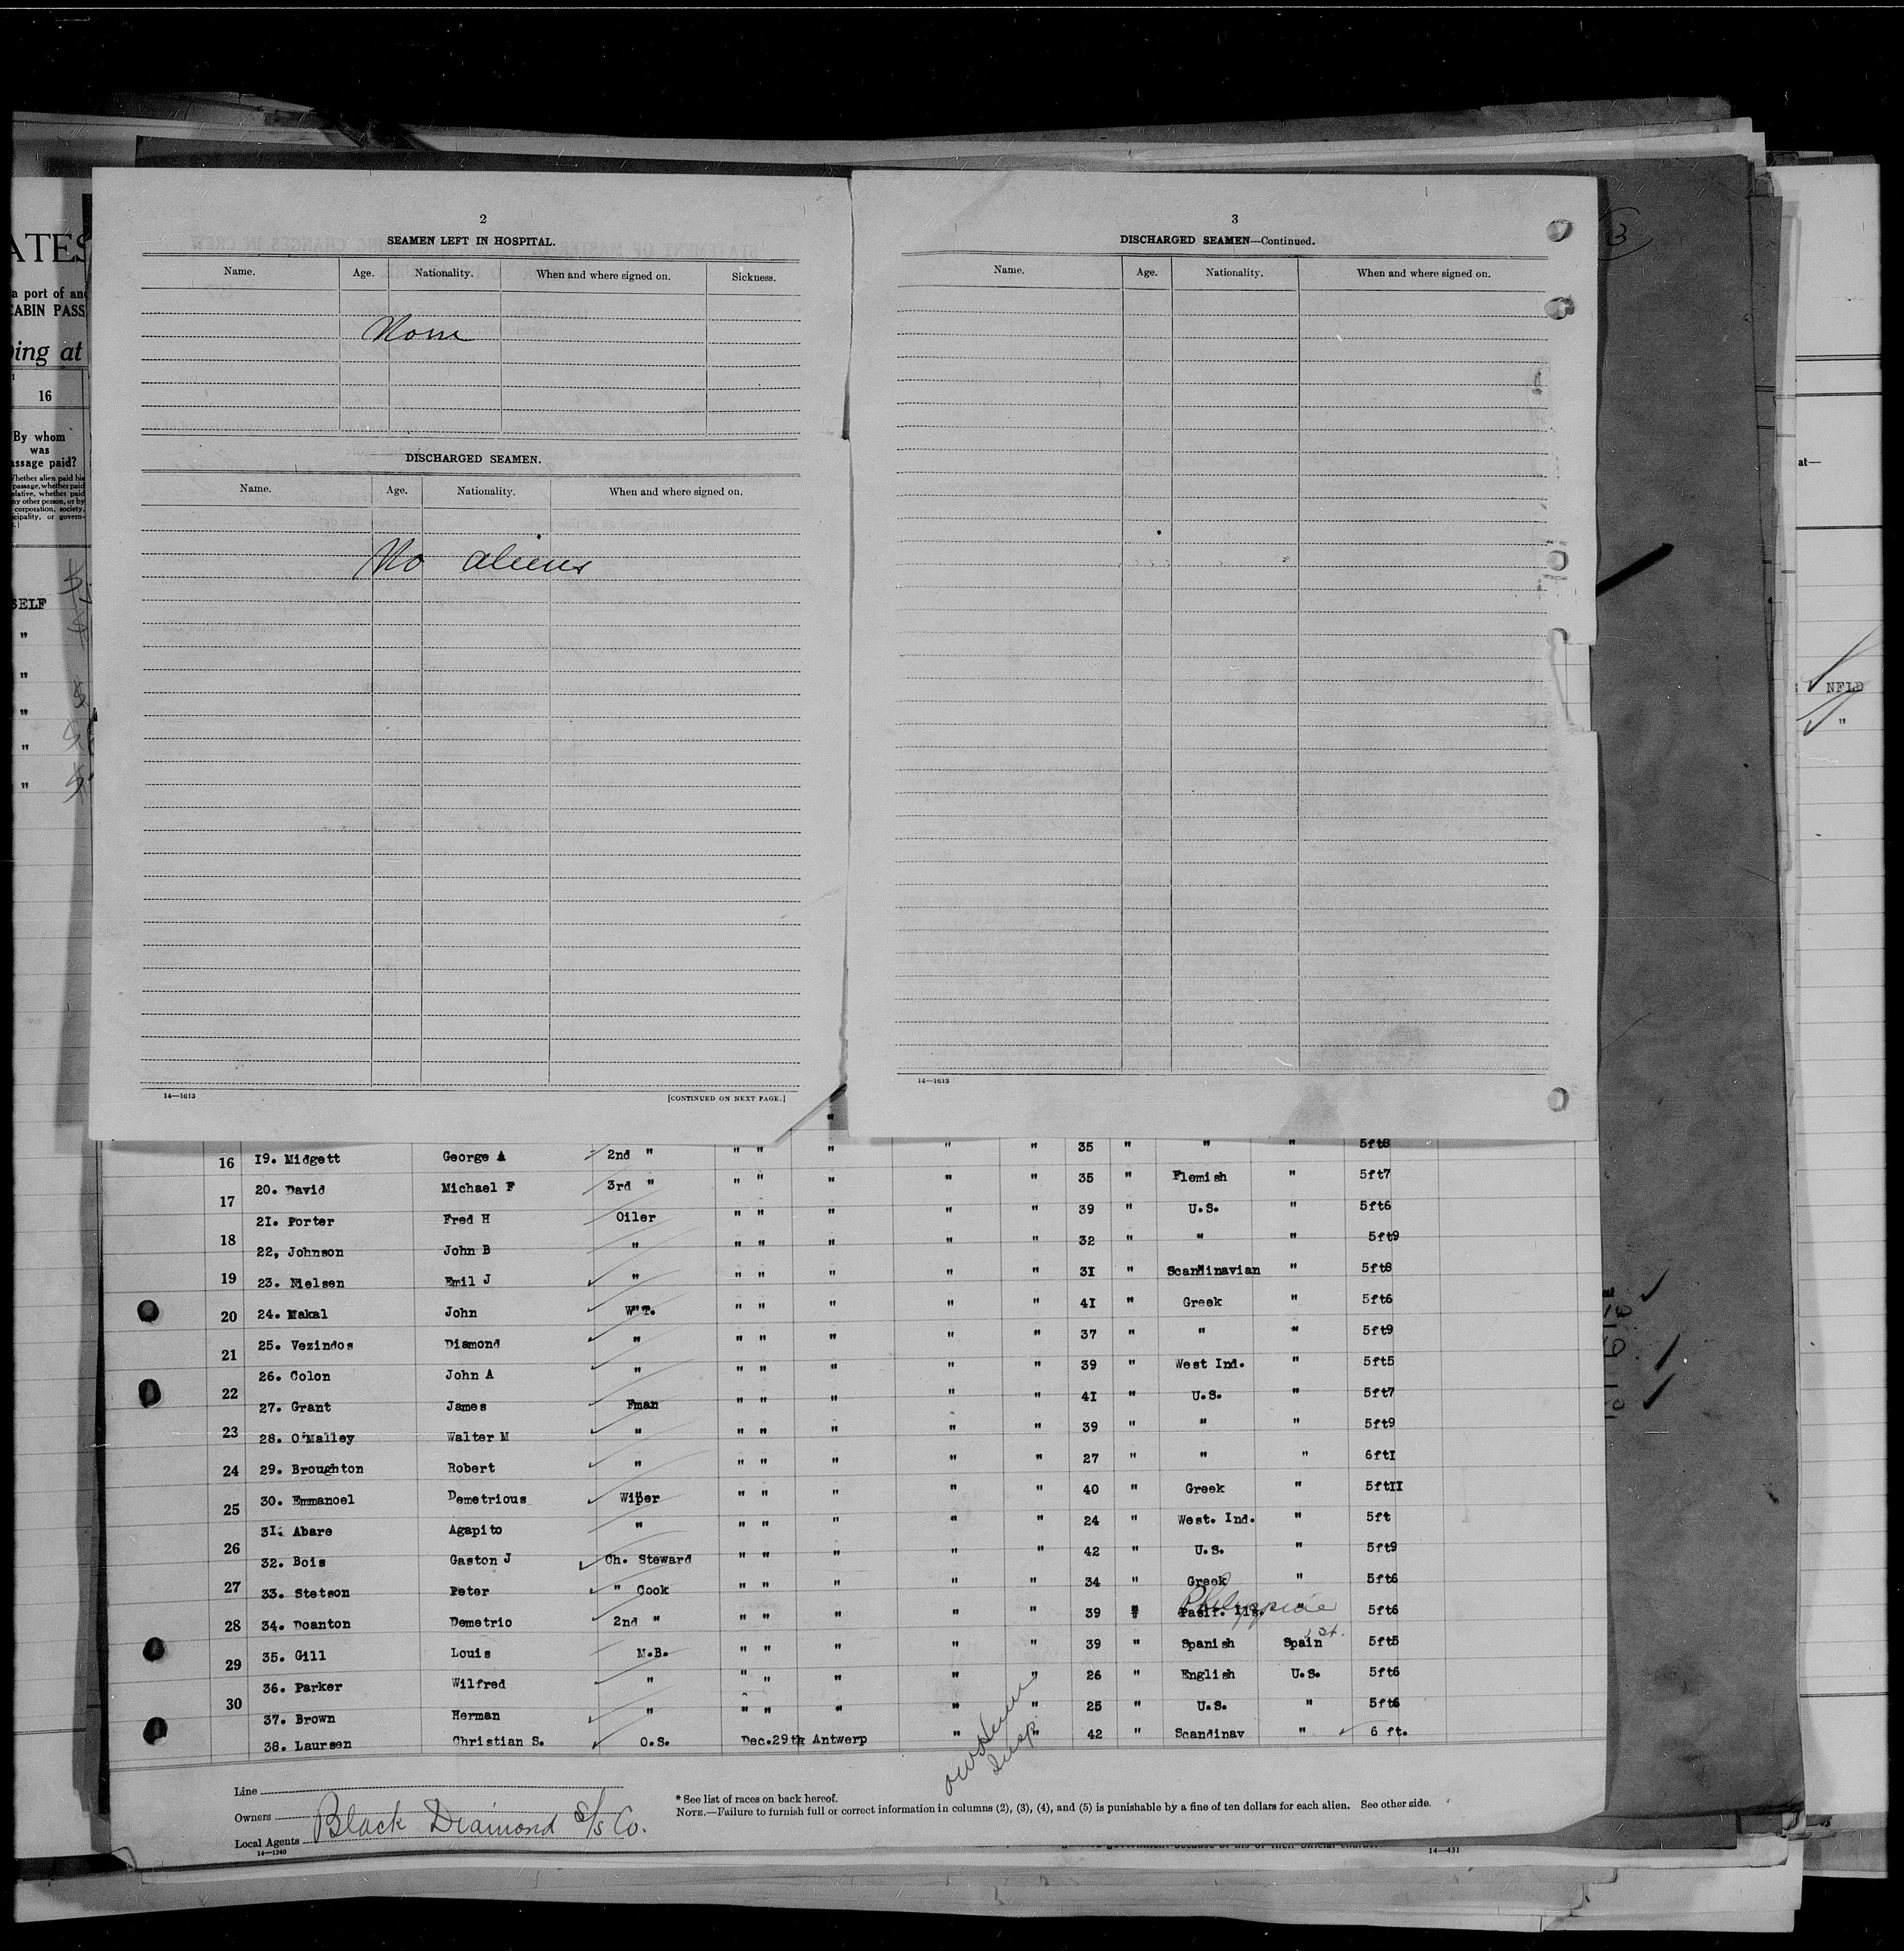 2
SEAMEN LEFT IN HOSPITAL.
Name. Age. Nationality. When and where signed on. Sickness.
None
DISCHARGED SEAMEN.
Name. Age. Nationality. When and where signed on.
No aliens
14—1613 [CONTINUED ON NEXT PAGE.]
3
DISCHARGED SEAMEN—Continued.
Name. Age. Nationality. When and where signed on.
14—1613
ATES
a port of an
CABIN PASS
ing at
16
By whom
was
assage paid?
SELF
"
"
"
"
"
at—
NFLD
"
16 19. Midgett George A 2nd " " " " " " 35 " " " 5ft8
17 20. David Michael F 3rd " " " " " " 35 " Flemish " 5ft7
21. Porter Fred H Oiler " " " " " 39 " U.S. " 5ft6
18 22, Johnson John B " " " " " " 32 " " " 5ft9
19 23. Nielsen Emil J " " " " " " 31 " Scandinavian " 5ft8
20 24. Makal John W.T. " " " " " 41 " Greek " 5ft6
21 25. Vezindos Diamond " " " " " " 37 " " " 5ft9
26. Colon John A " " " " " " 39 " West Ind. " 5ft5
22 27. Grant James Fman " " " " " 41 " U.S. " 5ft7
23 28. O'Malley Walter M " " " " " " 39 " " " 5ft9
24 29. Broughton Robert " " " " " " 27 " " " 6ftI
25 30. Emmanoel Demetrious Wiper " " " " " 40 " Greek " 5ftII
31. Abare Agapito " " " " " " 24 " West. Ind. " 5ft
26 32. Bois Gaston J Ch. Steward " " " " " 42 " U.S. " 5ft9
27 33. Stetson Peter " Cook " " " " " 34 " Greek " 5ft6
28 34. Doanton Demetrio 2nd " " " " " " 39 " Pasif. Ils. Philippine " 5ft6
29 35. Gill Louis M.B. " " " " " 39 " Spanish Spain 5ft5
36. Parker Wilfred " " " " " " 26 " English U.S. 5ft6
30 37. Brown Herman " " " " " " 25 " U.S. " 5ft6
38. Laursen Christian S. O.S. Dec.29th Antwerp " " 42 " Scandinav " 6 ft.
Insp.
Line
Owners
Black Diamond S/S Co.
Local Agents
14—1240
* See list of races on back hereof.
NOTE.—Failure to furnish full or correct information in columns (2), (3), (4), and (5) is punishable by a fine of ten dollars for each alien. See other side.
14—431